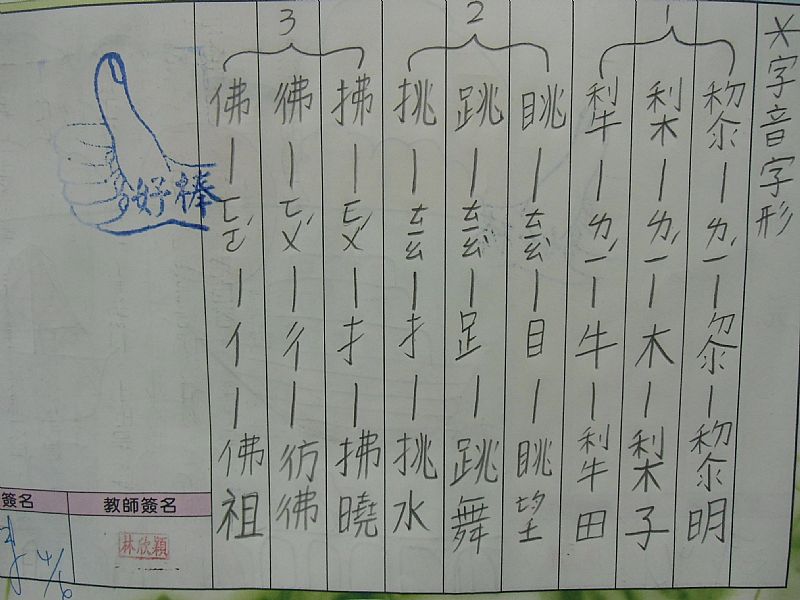 ※字音字形
1
黎—ㄌㄧˊ—黍—黎明
梨—ㄌㄧˊ—木—梨子
犁—ㄌㄧˊ—牛—犁田
2
眺—ㄊㄧㄠˋ—目—眺望
跳—ㄊㄧㄠˋ—足—跳舞
挑—ㄊㄧㄠ—扌—挑水
3
拂—ㄈㄨˊ—扌—拂曉
彿—ㄈㄨˊ—彳—彷彿
佛—ㄈㄛˊ—亻—佛祖
好棒
教師簽名
林欣穎
簽名
4/6